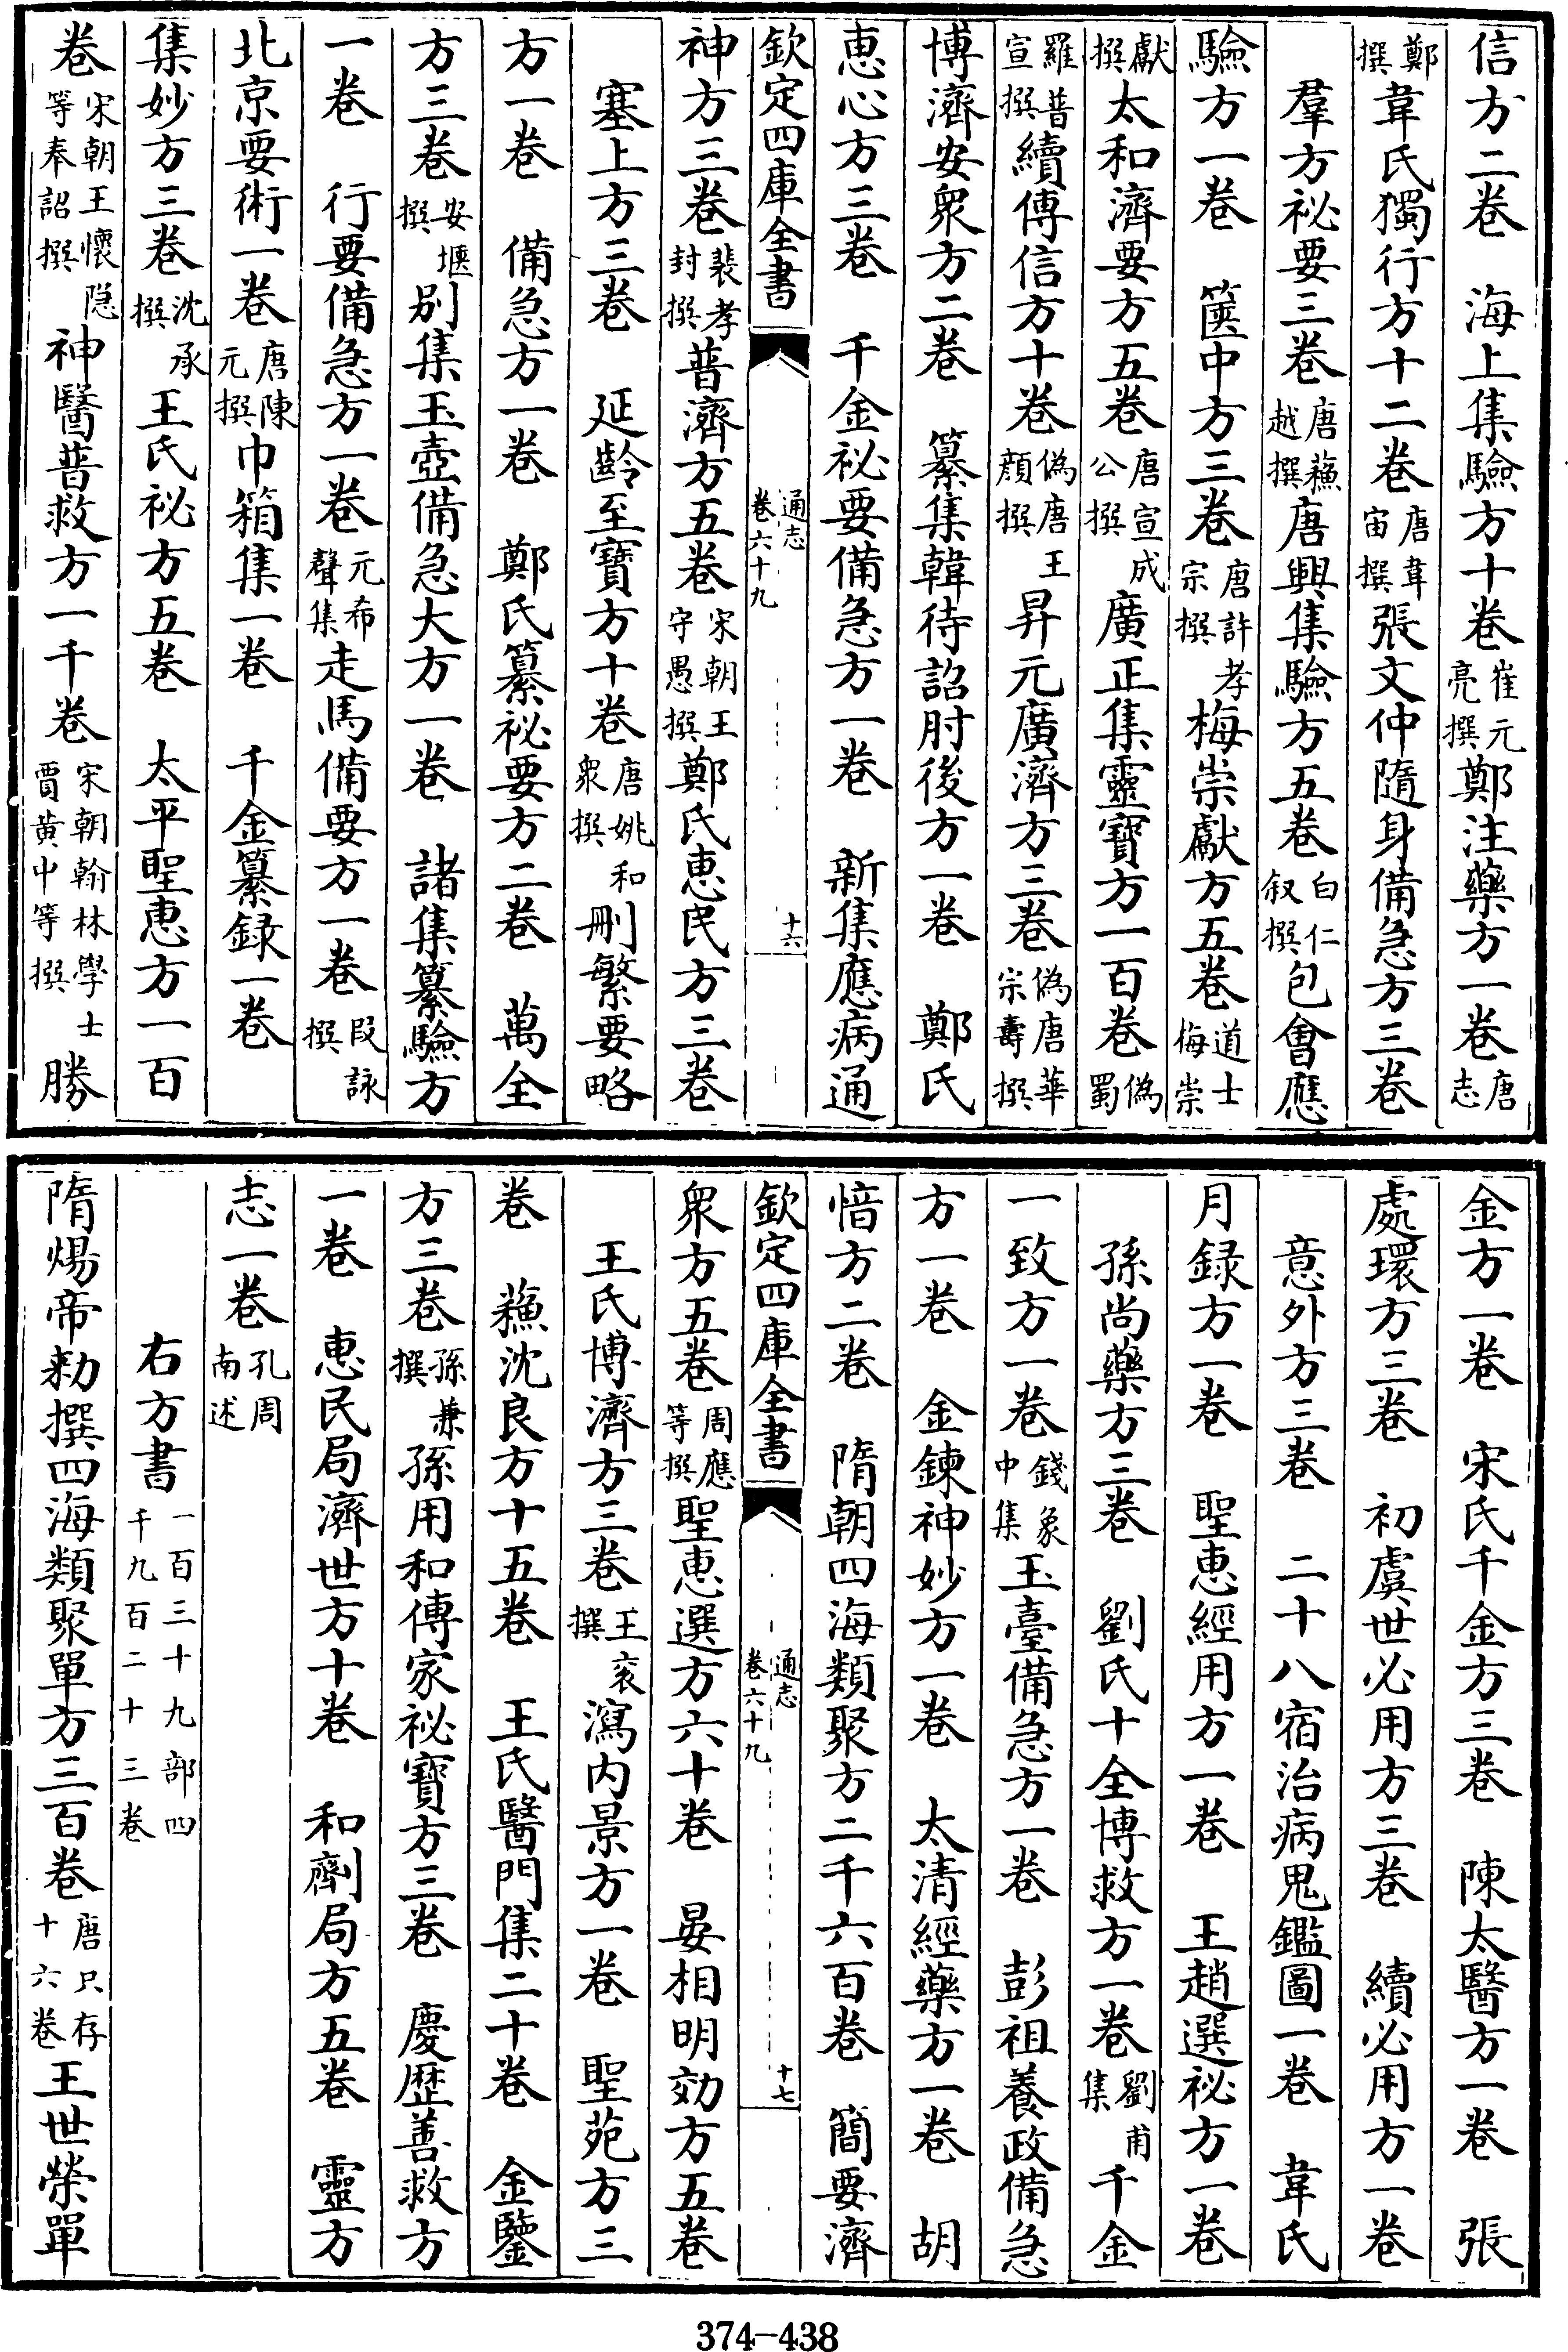 信方二卷　海上集驗方十卷崔元亮撰鄭注藥方一卷唐志
鄭撰韋氏獨行方十二卷唐韋宙撰張文仲隨身備急方三卷
羣方祕要三卷唐蘓越撰唐興集驗方五卷白仁叙撰包會應
驗方一卷　篋中方三卷唐許孝宗撰梅崇獻方五卷道士梅崇
獻撰太和濟要方五卷唐宣成公撰廣正集靈寶方一百卷偽蜀
羅普宣撰續傳信方十卷偽唐王顔撰昇元廣濟方三卷偽唐華宗壽撰
博濟安衆方二卷　纂集韓待詔肘後方一卷　鄭氏
惠心方三卷　千金祕要備急方一卷　新集應病通
欽定四庫全書　通志卷六十九　十六
神方三卷裴孝封撰普濟方五卷宋朝王守愚撰鄭氏惠民方三卷
塞上方三卷　延齡至寶方十卷唐姚和衆撰刪繁要略
方一卷　備急方一卷　鄭氏纂祕要方二卷　萬全
方三卷安堰撰別集玉壺備急大方一卷　諸集纂驗方
一卷　行要備急方一卷元希聲集走馬備要方一卷段詠撰
北京要術一卷唐陳元撰巾箱集一卷　千金纂録一卷
集妙方三卷沈承撰王氏祕方五卷　太平聖惠方一百
卷宋朝王懷隱等奉詔撰神醫普救方一千卷宋朝翰林學士賈黄中等撰勝
金方一卷　宋氏千金方三卷　陳太醫方一卷　張
處環方三卷　初虞世必用方三卷　續必用方一卷
意外方三卷　二十八宿治病鬼鑑圖一卷　韋氏
月録方一卷　聖惠經用方一卷　王趙選祕方一卷
孫尚藥方三卷　劉氏十全博救方一卷劉甫集千金
一致方一卷錢象中集玉臺備急方一卷　彭祖養政備急
方一卷　金鍊神妙方一卷　太清經藥方一卷　胡
愔方二卷　隋朝四海類聚方二千六百卷　簡要濟
欽定四庫全書　通志卷六十九　十七
衆方五卷周應等撰聖惠選方六十卷　晏相明効方五卷
王氏博濟方三卷王袞撰瀉内景方一卷　聖苑方三
卷　蘓沈良方十五卷　王氏醫門集二十卷　金鑒
方三卷孫兼撰孫用和傳家祕寶方三卷　慶歴善救方
一卷　惠民局濟世方十卷　和劑局方五卷　靈方
志一卷孔周南述
右方書一百三十九部四千九百二十三卷
隋煬帝勑撰四海類聚單方三百卷唐只存十六卷王世榮單
374-438